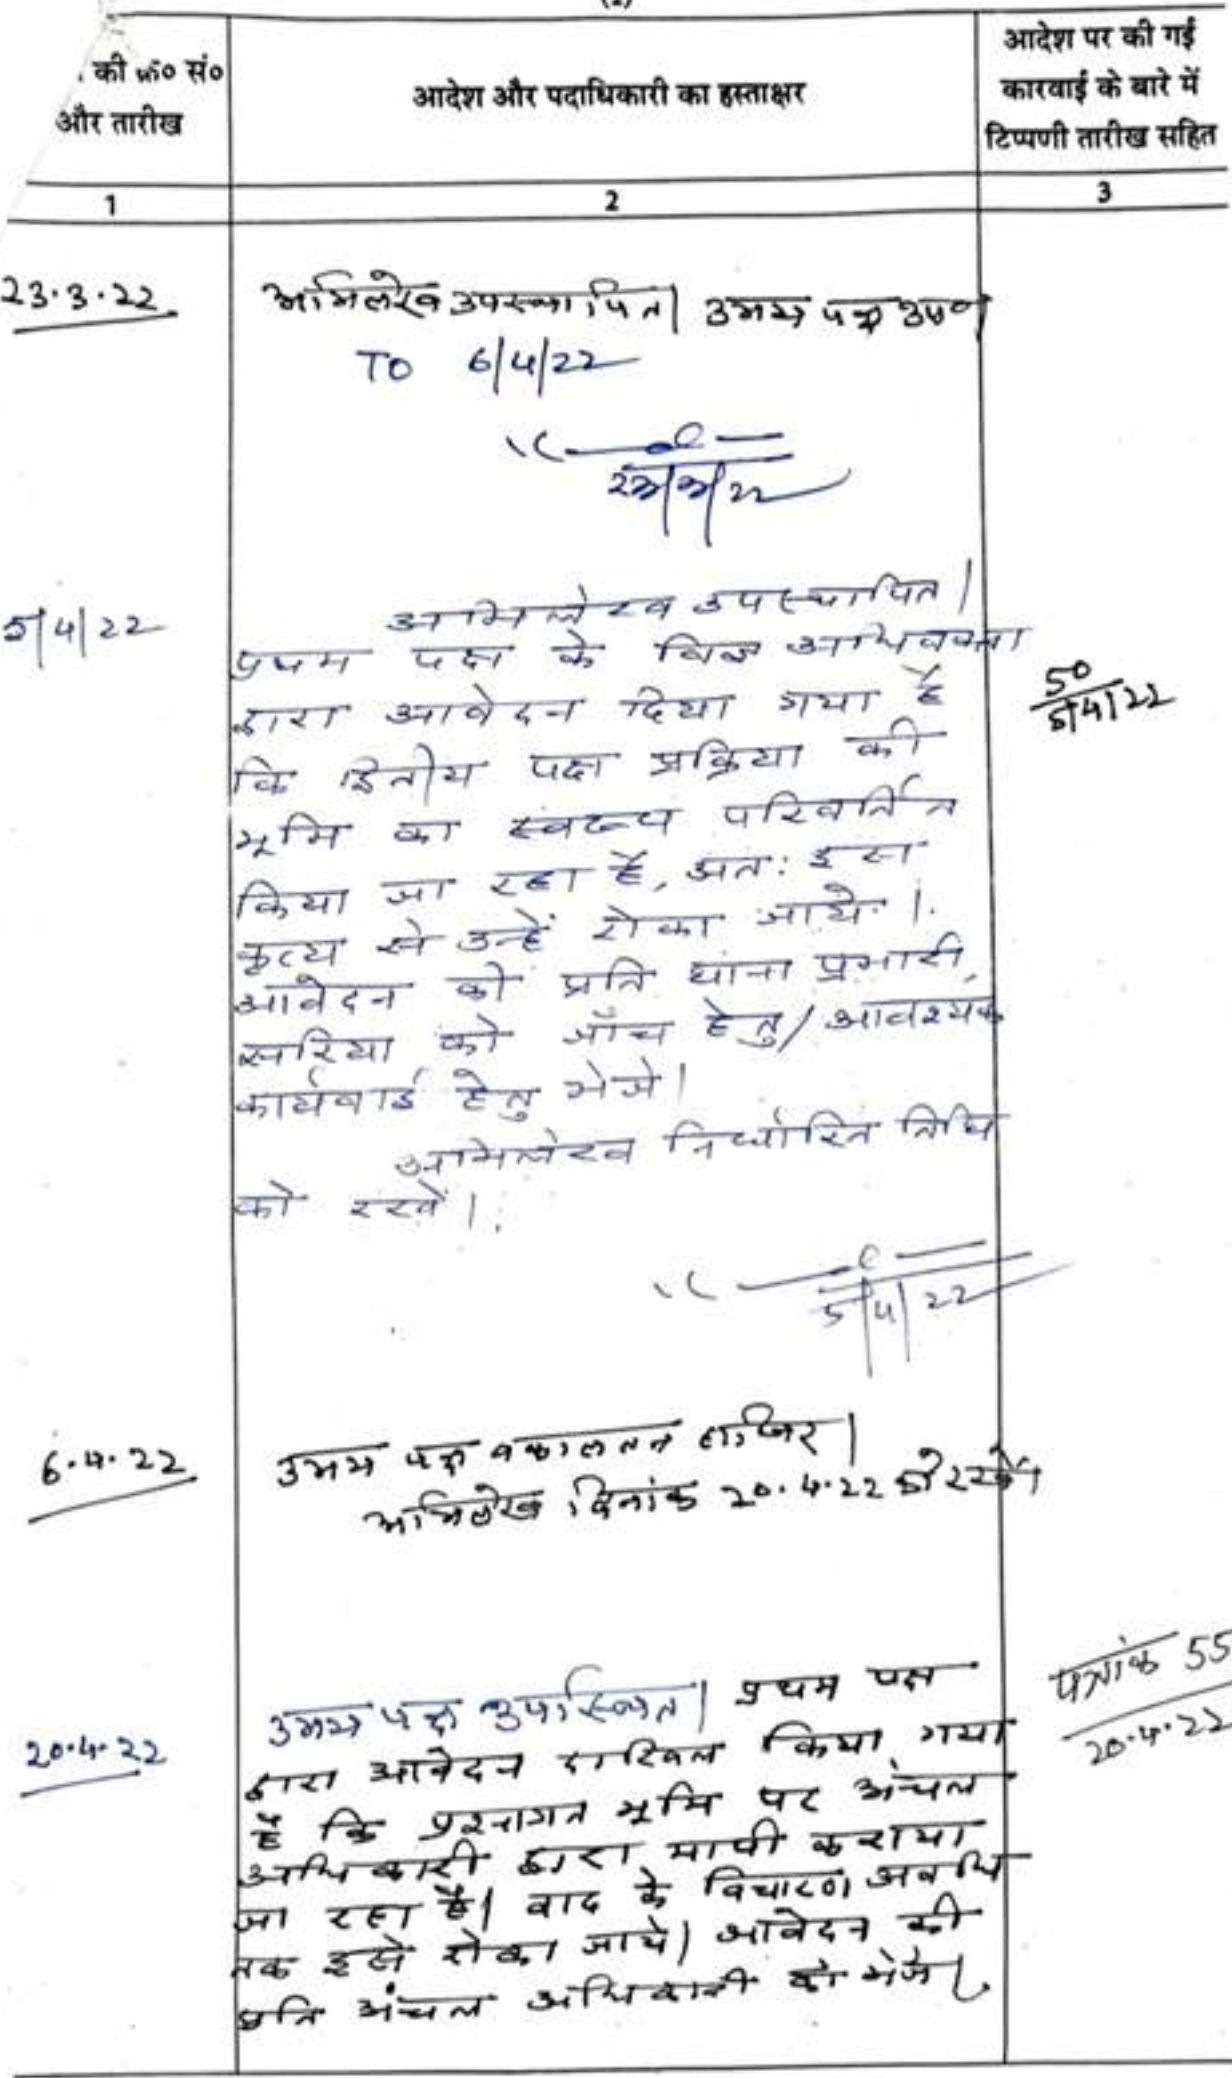 (2)
की क्र० सं०
और तारीख
आदेश और पदाधिकारी का हस्ताक्षर
आदेश पर की गई
कारवाई के बारे में
टिप्पणी तारीख सहित
1
2
3
23.3.22
अभिलेख उपस्थापित। उभय पक्ष उप०
TO 6/4/22
23/3/22
5/4/22
अभिलेख उपस्थापित।
प्रथम पक्ष के विज्ञ अधिवक्ता
द्वारा आवेदन दिया गया है
50
5/4/22
कि द्वितीय पक्ष प्रक्रिया की
भूमि का स्वरूप परिवर्तित
किया जा रहा है, अत: इस
कृत्य से उन्हें रोका जाये।
आवेदन की प्रति थाना प्रभारी,
सरिया को जाँच हेतु/आवश्यक
कार्यवाई हेतु भेजे।
अभिलेख निर्धारित तिथि
को रखें।
5/4/22
6.4.22
उभय पक्ष वकालतन हाजिर।
अभिलेख दिनांक 20.4.22 को रखें।
20.4.22
उभय पक्ष उपस्थित। प्रथम पक्ष
पत्रांक 55
20.4.22
द्वारा आवेदन दाखिल किया गया
है कि प्रश्नागत भूमि पर अंचल
अधिकारी द्वारा मापी कराया
जा रहा है। वाद के विचारण अवधि
तक इसे रोका जाये। आवेदन की
प्रति अंचल अधिकारी को भेजे।